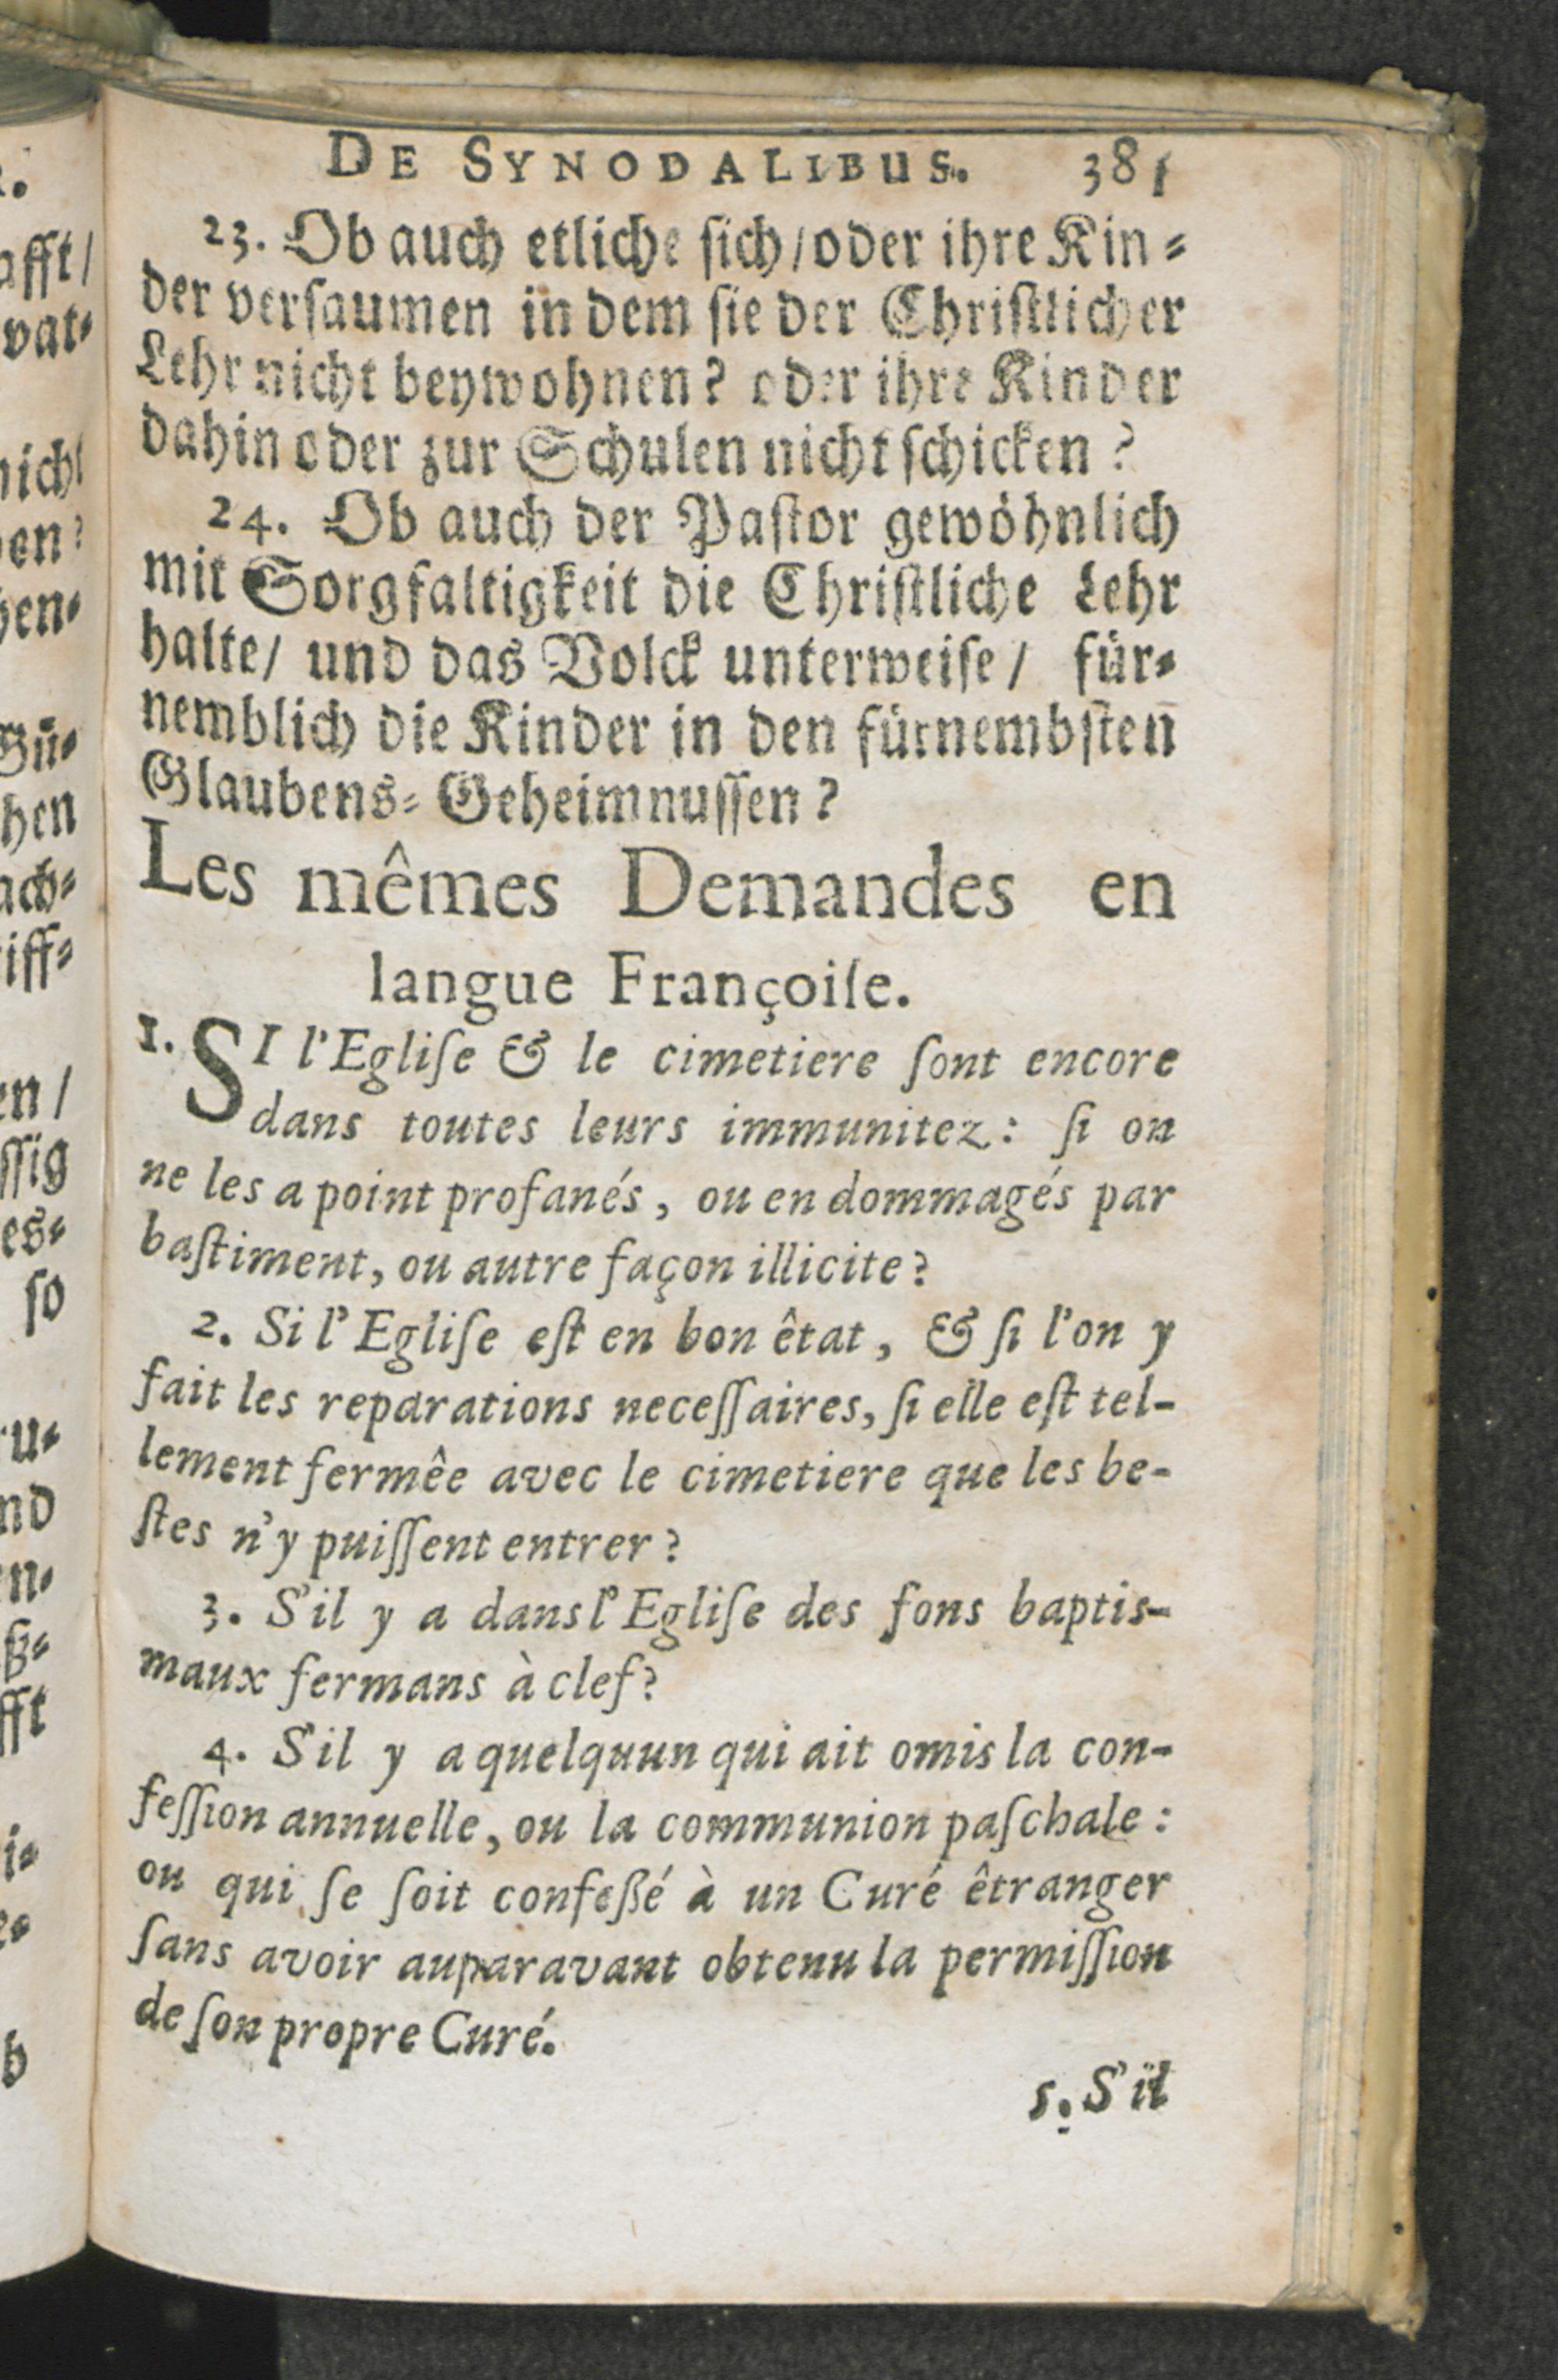 DE SYNODALIBUS. 381
23. Ob auch etliche sich/oder ihre Kin-
der versaumen in dem sie der Christlicher
Lehr nicht beywohnen? oder ihre Kinder
dahin oder zur Schulen nicht schicken?
24. Ob auch der Pastor gewöhnlich
mit Sorgfaltigkeit die Christliche Lehr
halte/ und das Volck unterweise/ für-
nemblich die Kinder in den fürnembsten
Glaubens-Geheimnussen?
Les mêmes Demandes en
langue Françoise.
1. SI l'Eglise & le cimetiere sont encore
dans toutes leurs immunitez: si on
ne les a point profanés, ou en dommagés par
bastiment, ou autre façon illicite?
2. Si l'Eglise est en bon êtat, & si l'on y
fait les reparations necessaires, si elle est tel-
lement fermêe avec le cimetiere que les be-
stes n'y puissent entrer?
3. S'il y a dans l'Eglise des fons baptis-
maux fermans à clef?
4. S'il y a quelquun qui ait omis la con-
fession annuelle, ou la communion paschale:
ou qui se soit confeßé à un Curé êtranger
sans avoir auparavant obtenu la permission
de son propre Curé.
5. S'il